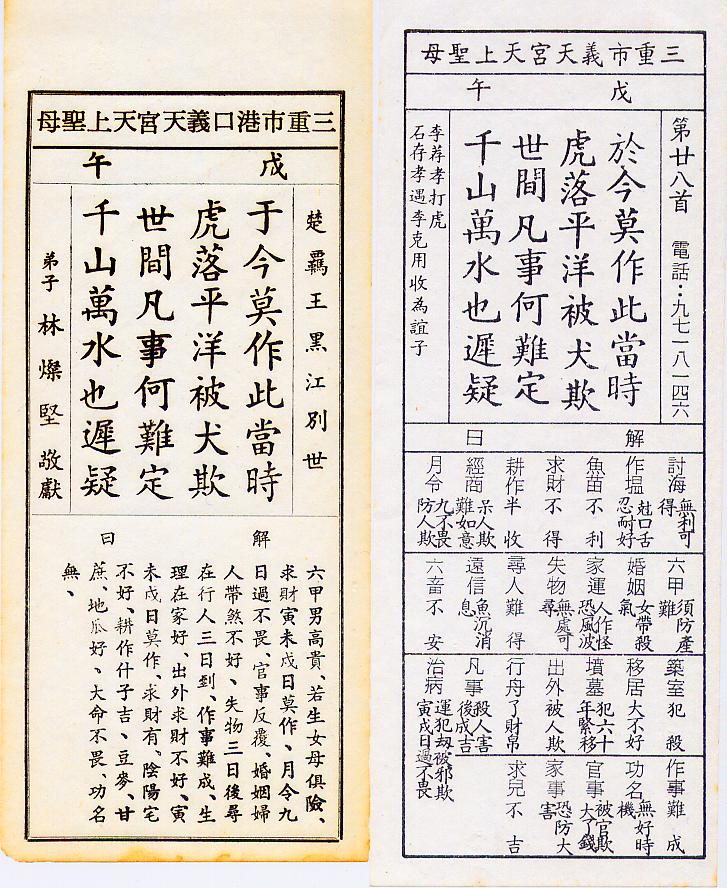 三重市港口義天宮天上聖母
戊
午
楚羈王黑江別世
于今莫作此當時
虎落平洋被犬欺
世間凡事何難定
千山萬水也遲疑
弟子林燦堅敬獻
解
曰
六甲男高貴、若生女母俱險、
求財寅未戌日莫作、月令九
日過不畏、官事反覆、婚姻婦
人帶煞不好、失物三日後尋
在行人三日到、作事難成、生
理在家好、出外求財不好、寅
未戌日莫作、求財有、陰陽宅
不好、耕作什子吉、豆麥、甘
蔗、地瓜好、大命不畏、功名
無、
三重市義天宮天上聖母
戊
午
第廿八首 電話：九七一八一四六
於今莫作此當時
虎落平洋被犬欺
世間凡事何難定
千山萬水也遲疑
李荐孝打虎
石存孝遇李克用收為誼子
解
曰
討海無利可得
作塭尅口舌忍耐好
魚苗不利
求財不得
耕作半收
經商呆人欺難如意
月令九不畏防人欺
六甲須防產難
婚姻女帶殺氣
家運人作怪恐風波
失物無處可尋
尋人難得
遠信魚沉消息
六畜不安
築室犯殺
移居大不好
墳墓犯六十年緊移
出外被人欺
行舟了財帛
凡事殺人害後成吉
治病運犯刼被邪欺寅戌日過不畏
作事難成
功名無好時機
官事被官欺大了錢
家事恐防大害
求兒不吉